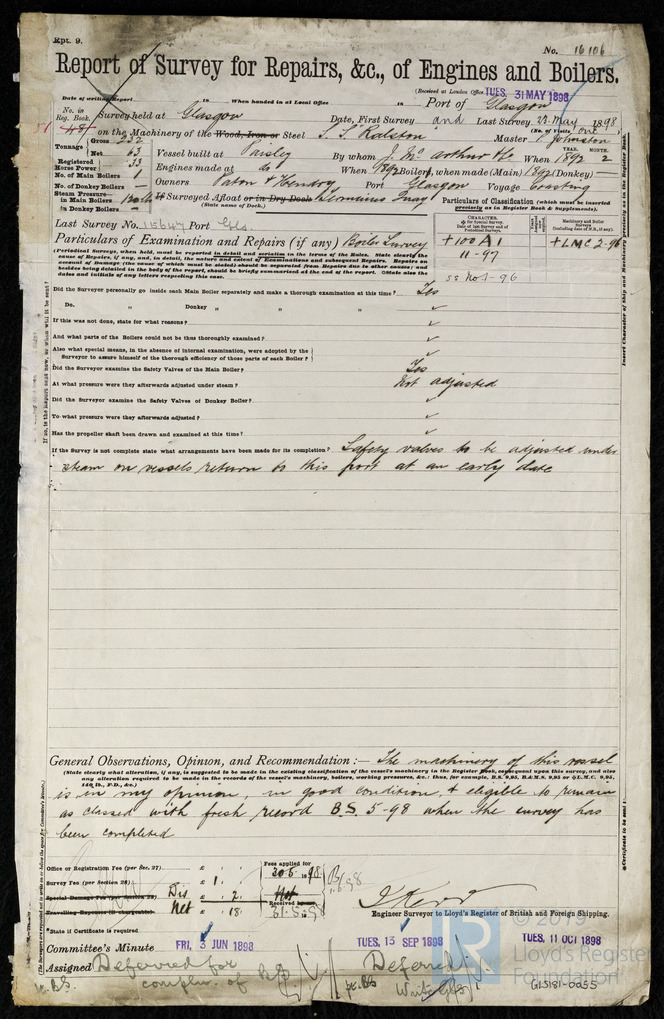 Rpt. 9.
No. 16106
Report of Survey for Repairs, &c., of Engines and Boilers.
(Received at London Office TUES. 31 MAY 1898
Date of writing Report 18 When handed in at Local Office 18 Port of Glasgow
No. in Reg. Book. Survey held at Glasgow Date, First Survey and Last Survey 23 May 1898
(No. of Visits one)
on the Machinery of the Wood, Iron or Steel S.S. "Ralston" Master P Johnston
Tonnage Gross 232
Net 63
Vessel built at Paisley By whom J. Mc Arthur & Co When YEAR. 1892 MONTH. 2
Registered Horse Power 33
Engines made at do When 1892 Boilers, when made (Main) 1892 (Donkey) —
No. of Main Boilers 1
No. of Donkey Boilers —
Owners Paton & Hendry Port Glasgow Voyage Coasting
Steam Pressure in Main Boilers
in Donkey Boilers —
If Surveyed Afloat or in Dry Dock Terminus Quay
(State name of Dock.)
Particulars of Classification (which must be inserted precisely as in Register Book & Supplements).
Last Survey No. 15647 Port Gls.
CHARACTER.
Machinery and Boiler Surveys
+100A1
11-97
+LMC 2-96
ss No 1-96
Particulars of Examination and Repairs (if any) Boiler Survey
(Periodical Surveys, when held, must be reported in detail and seriatim in the terms of the Rules. State clearly the
cause of Repairs, if any, and, in detail, the nature and extent of Examinations and subsequent Repairs. Repairs on
account of Damage (the cause of which must be stated) should be separated from Repairs due to other causes; and
besides being detailed in the body of the report, should be briefly summarised at the end of the report. State also the
dates and initials of any letters respecting this case.
Did the Surveyor personally go inside each Main Boiler separately and make a thorough examination at this time? Yes
Do. " Donkey " "
If this was not done, state for what reasons?
And what parts of the Boilers could not be thoroughly examined?
Also what special means, in the absence of internal examination, were adopted by the
Surveyor to assure himself of the thorough efficiency of those parts of each Boiler?
Did the Surveyor examine the Safety Valves of the Main Boiler? Yes
At what pressure were they afterwards adjusted under steam? Not adjusted
Did the Surveyor examine the Safety Valves of Donkey Boiler?
To what pressure were they afterwards adjusted?
Has the propeller shaft been drawn and examined at this time?
If the Survey is not complete state what arrangements have been made for its completion? Safety valves to be adjusted under
steam on vessels return to this port at an early date
General Observations, Opinion, and Recommendation:— The machinery of this vessel
(State clearly what alteration, if any, is suggested to be made in the existing classification of the vessel's machinery in the Register Book, consequent upon this survey, and also
any alteration required to be made in the records of the vessel's machinery, boilers, working pressures, &c.: thus, for example, B.S. 9,95, B.&M.S. 9,95 or L.M.C. 9,95,
140 lb., F.D., &c.)
is in my opinion, in good condition, & eligible to remain
as classed with fresh record B.S. 5-98 when the survey has
been completed
Office or Registration Fee (per Sec. 27) £ : :
Fees applied for
30-5-1898
Survey Fee (per Section 28) £ 1 : :
Dis £ : 2 :
Net £ : 18 :
31-5-98
Engineer Surveyor to Lloyd's Register of British and Foreign Shipping.
State if Certificate is required
Committee's Minute FRI. 3 JUN 1898 TUES. 13 SEP 1898 TUES. 11 OCT 1898
Assigned Deferred for
compln. of BS
Deferred
© 2019
Lloyd's Register
Foundation
GLS181-0055
Insert Character of Ship and Machinery precisely as in Register Book.